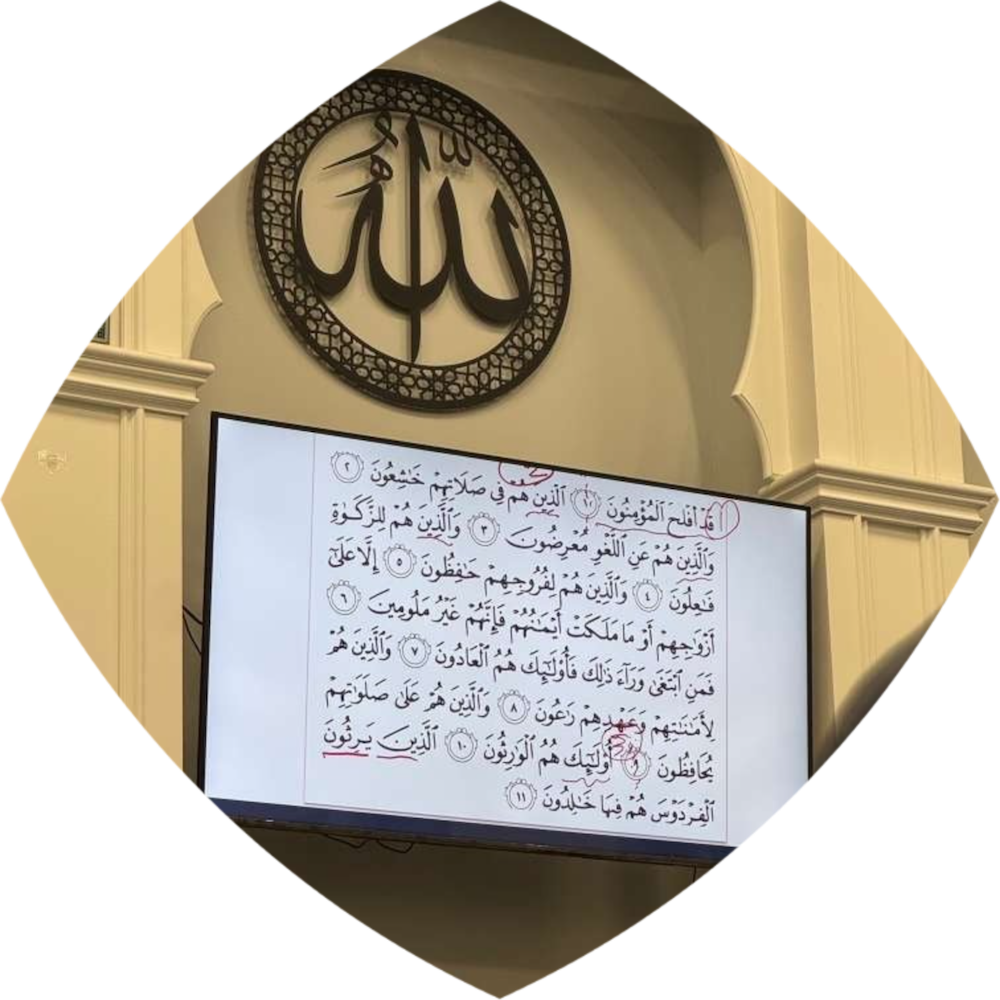 اللّٰهُ
قَدْ أَفْلَحَ ٱلْمُؤْمِنُونَ ١ ٱلَّذِينَ هُمْ فِي صَلَاتِهِمْ خَٰشِعُونَ ٢
وَٱلَّذِينَ هُمْ عَنِ ٱللَّغْوِ مُعْرِضُونَ ٣ وَٱلَّذِينَ هُمْ لِلزَّكَوٰةِ
فَٰعِلُونَ ٤ وَٱلَّذِينَ هُمْ لِفُرُوجِهِمْ حَٰفِظُونَ ٥ إِلَّا عَلَىٰٓ
أَزْوَٰجِهِمْ أَوْ مَا مَلَكَتْ أَيْمَٰنُهُمْ فَإِنَّهُمْ غَيْرُ مَلُومِينَ ٦
فَمَنِ ٱبْتَغَىٰ وَرَآءَ ذَٰلِكَ فَأُو۟لَٰٓئِكَ هُمُ ٱلْعَادُونَ ٧ وَٱلَّذِينَ هُمْ
لِأَمَٰنَٰتِهِمْ وَعَهْدِهِمْ رَٰعُونَ ٨ وَٱلَّذِينَ هُمْ عَلَىٰ صَلَوَٰتِهِمْ
يُحَافِظُونَ ٩ أُو۟لَٰٓئِكَ هُمُ ٱلْوَٰرِثُونَ ١٠ ٱلَّذِينَ يَرِثُونَ
ٱلْفِرْدَوْسَ هُمْ فِيهَا خَٰلِدُونَ ١١